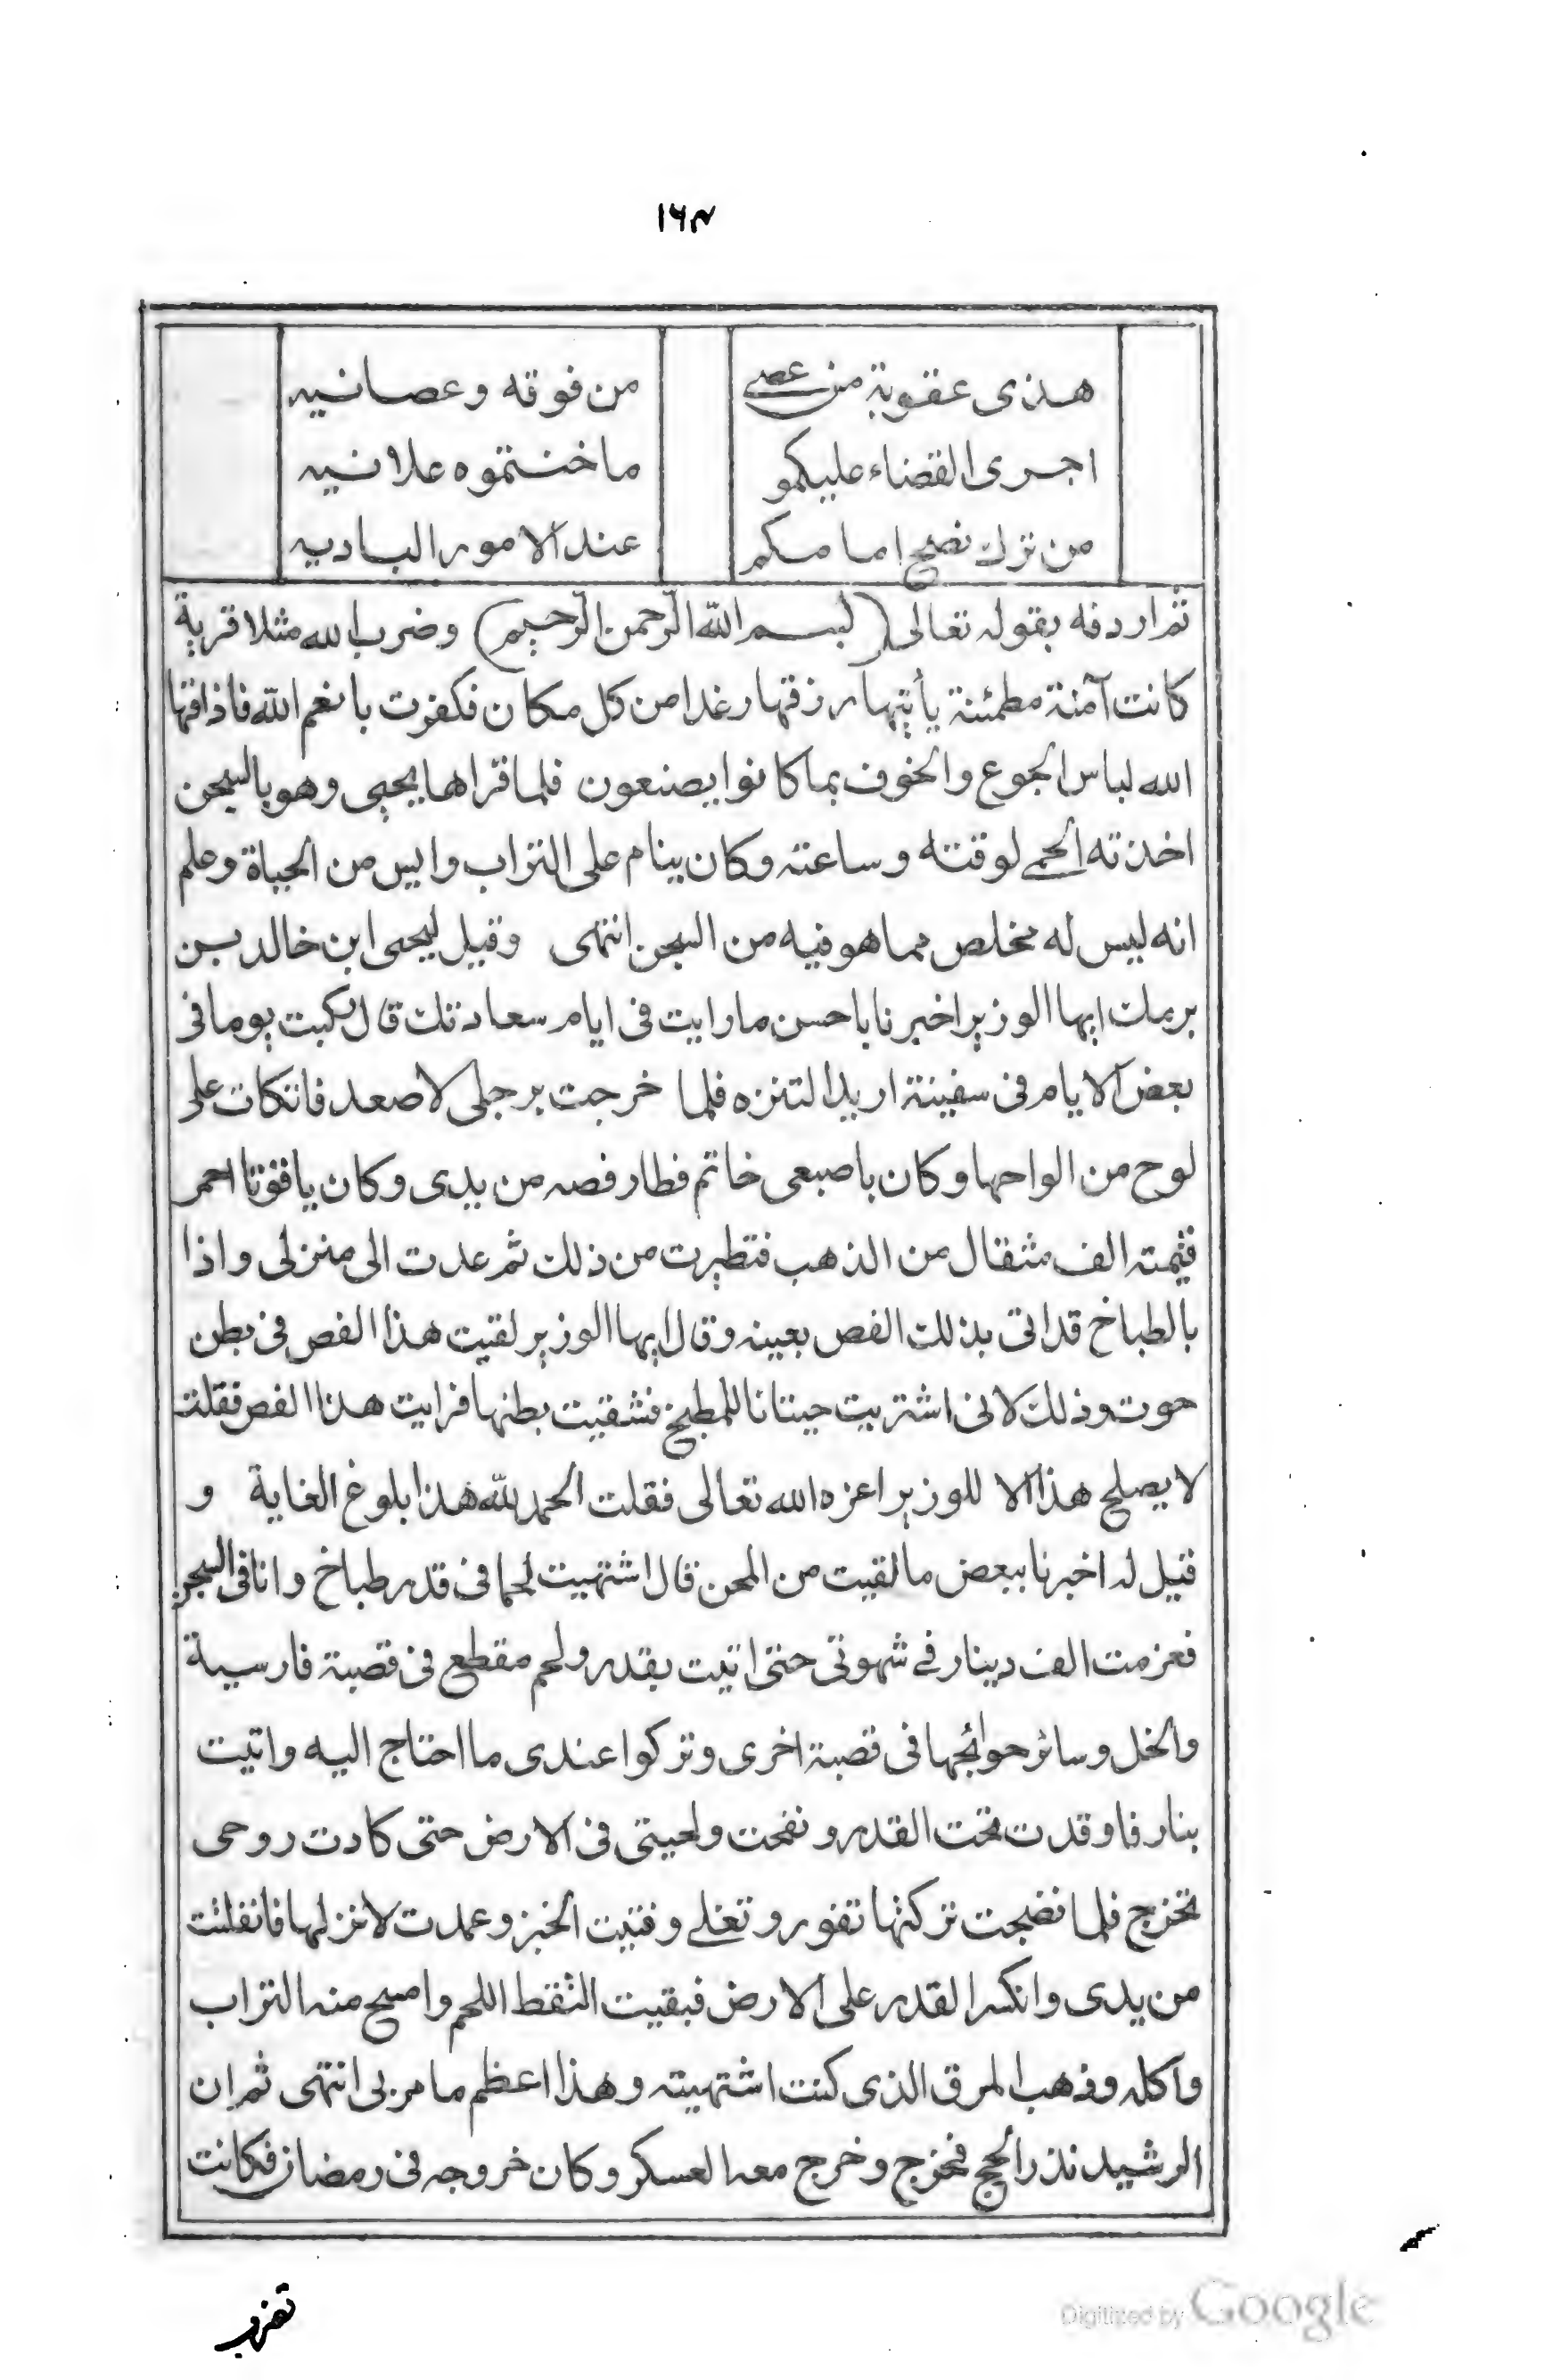 ١٦٣
هذى عقوبة من عصى من فوقه وعصانيه
اجرى القضاء عليكمو ما خنتموه علانيه
من ترك نصح امامكم عند الامور الباديه
ثم اردفه بقوله تعالى (بسم الله الرحمن الرحيم) وضرب الله مثلا قرية
كانت آمنة مطمئنة يأتيها رزقها رغدا من كل مكان فكفرت بانعم الله فاذاقها
الله لباس الجوع والخوف بما كانوا يصنعون فلما قراها يحيى وهو بالسجن
اخذته الحمى لوقته وساعته وكان ينام على التراب وايس من الحياة وعلم
انه ليس له مخلص مما هو فيه من السجن انتهى وقيل ليحيى ابن خالد بن
برمك ايها الوزير اخبرنا باحسن ما رايت فى ايام سعادتك قال ركبت يوما فى
بعض الايام فى سفينة اريد التنزه فلما خرجت برجلى لاصعد فاتكات على
لوح من الواحها وكان باصبعى خاتم فطار فصه من يدى وكان ياقوتا احمر
قيمته الف مثقال من الذهب فتطيرت من ذلك ثم عدت الى منزلى واذا
بالطباخ قد اتى بذلك الفص بعينه وقال ايها الوزير لقيت هذا الفص فى بطن
حوت وذلك لانى اشتريت حيتانا للمطبخ فشقيت بطنها فرايت هذا الفص فقلت
لا يصلح هذا الا للوزير اعزه الله تعالى فقلت الحمد لله هذا بلوغ الغاية و
قيل له اخبرنا ببعض ما لقيت من المحن قال اشتهيت لحما فى قدر طباخ وانا فى السجن
فغرمت الف دينار فى شهوتى حتى اتيت بقدر ولحم مقطع فى قصبة فارسية
والخل وسائر حوائجها فى قصبة اخرى وتركوا عندى ما احتاج اليه واتيت
بنار فاوقدت تحت القدر ونفخت ولحيتى فى الارض حتى كادت روحى
تخرج فلما نضجت تركتها تفور وتغلى وفتيت الخبز وعمدت لانزلها فانفلتت
من يدى وانكسر القدر على الارض فبقيت التقط اللحم وامسح منه التراب
واكله وذهب المرق الذى كنت اشتهيته وهذا اعظم ما مر بى انتهى ثم ان
الرشيد نذر الحج فخرج وخرج معه العسكر وكان خروجه فى رمضان فكانت
Digitized by Google